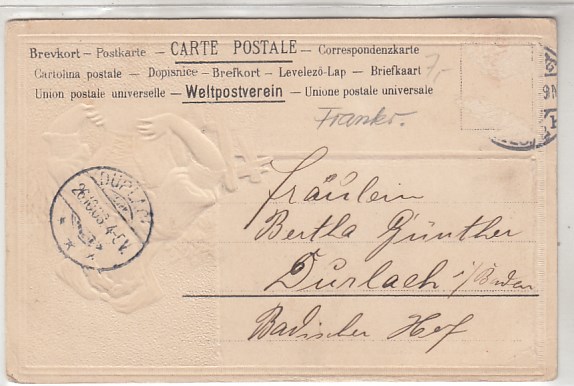 Brevkort – Postkarte – CARTE POSTALE – Correspondenzkarte
Cartolina postale – Dopisnice – Brefkort – Levelező-Lap – Briefkaart
Union postale universelle – Weltpostverein – Unione postale universale
Franko.
DURLACH
Fräulein
Bertha Günther
Durlach i/Baden
Badischer Hof